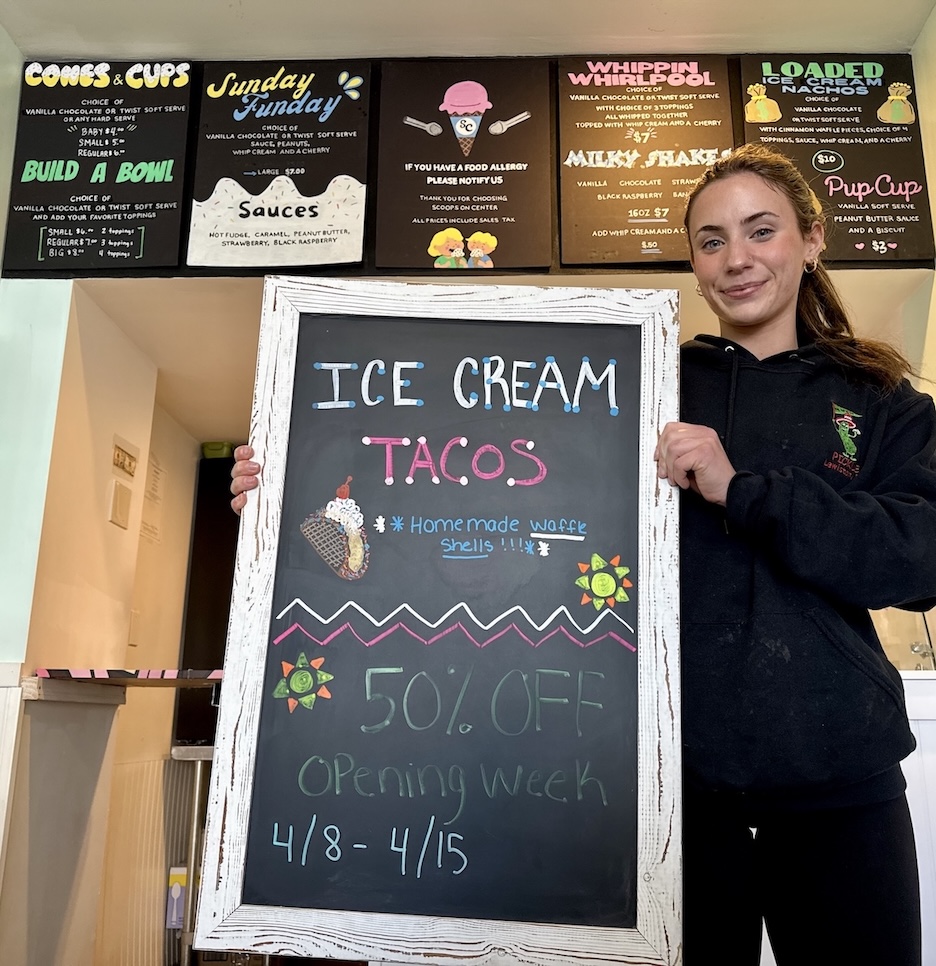 CONES & CUPS
CHOICE OF
VANILLA CHOCOLATE OR TWIST SOFT SERVE
OR ANY HARD SERVE
BABY $4.00
SMALL $5.00
REGULAR $6.00
BUILD A BOWL
CHOICE OF
VANILLA CHOCOLATE OR TWIST SOFT SERVE
AND ADD YOUR FAVORITE TOPPINGS
SMALL $6.00 2 toppings
REGULAR $7.00 3 toppings
BIG $8.00 4 toppings
Sunday
Funday
CHOICE OF
VANILLA CHOCOLATE OR TWIST SOFT SERVE
SAUCE, PEANUTS,
WHIP CREAM AND A CHERRY
LARGE $7.00
Sauces
HOT FUDGE, CARAMEL, PEANUT BUTTER,
STRAWBERRY, BLACK RASPBERRY
SC
IF YOU HAVE A FOOD ALLERGY
PLEASE NOTIFY US
THANK YOU FOR CHOOSING
SCOOPS ON CENTER
ALL PRICES INCLUDE SALES TAX
WHIPPIN
WHIRLPOOL
CHOICE OF
VANILLA CHOCOLATE OR TWIST SOFT SERVE
WITH CHOICE OF 3 TOPPINGS
ALL WHIPPED TOGETHER
TOPPED WITH WHIP CREAM AND A CHERRY
$7
MILKY SHAKES
VANILLA CHOCOLATE STRAW
BLACK RASPBERRY BA
16OZ $7
ADD WHIP CREAM AND A CHERRY
$.50
LOADED
ICE CREAM
NACHOS
CHOICE OF
VANILLA CHOCOLATE
OR TWIST SOFT SERVE
WITH CINNAMON WAFFLE PIECES, CHOICE OF 4
TOPPINGS, SAUCE, WHIP CREAM, AND A CHERRY
$10
PupCup
VANILLA SOFT SERVE
PEANUT BUTTER SAUCE
AND A BISCUIT
$3
ICE CREAM
TACOS
Homemade waffle
Shells !!!
50% OFF
Opening Week
4/8 - 4/15